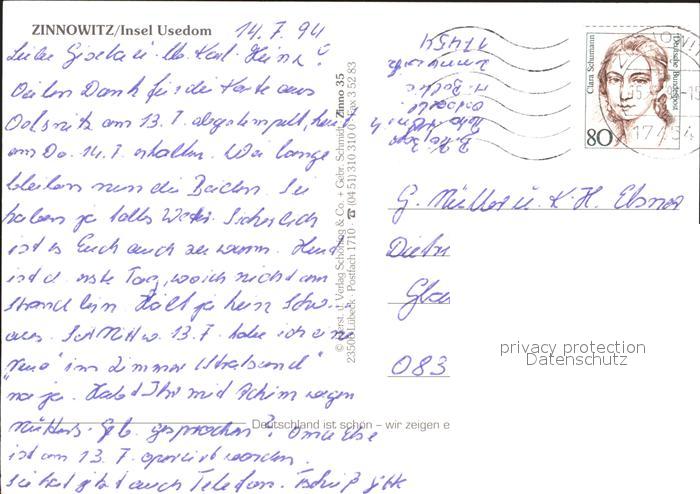 ZINNOWITZ/Insel Usedom 14.7.94
Liebe Gisela u. lb. Karl-Heinz!
Vielen Dank für die Karte aus
Oelsnitz am 13.7. abgestempelt, heut
am Do. 14.7. erhalten. Wie lange
bleiben nun die Beiden. Sie
haben ja tolles Wetter. Sicherlich
ist es Euch auch zu warm. Heut
ist d. erste Tag, wo ich nicht am
Strand bin. Hält ja kein
aus. Seit Mittw. 13.7. habe ich eine
"Neue" im Zimmer "Stralsund"
na ja. Habt Ihr mit Achim wegen
Mutters Geb. gesprochen? Oma Else
ist am 13.7. operiert worden.
Sie hat jetzt auch Telefon. Tschüß
© Verlag Schöning & Co. + Gebr. Schmidt, Zinno 35
23506 Lübeck · Postfach 1710 · ☎ (04 51) 310 310 Fax 3 52 83
Deutschland ist schön – wir zeigen e
17454
Clara Schumann
Deutsche Bundespost
80
17454
G. Müller u. K. H. Ebsner
Dietr
083
privacy protection
Datenschutz